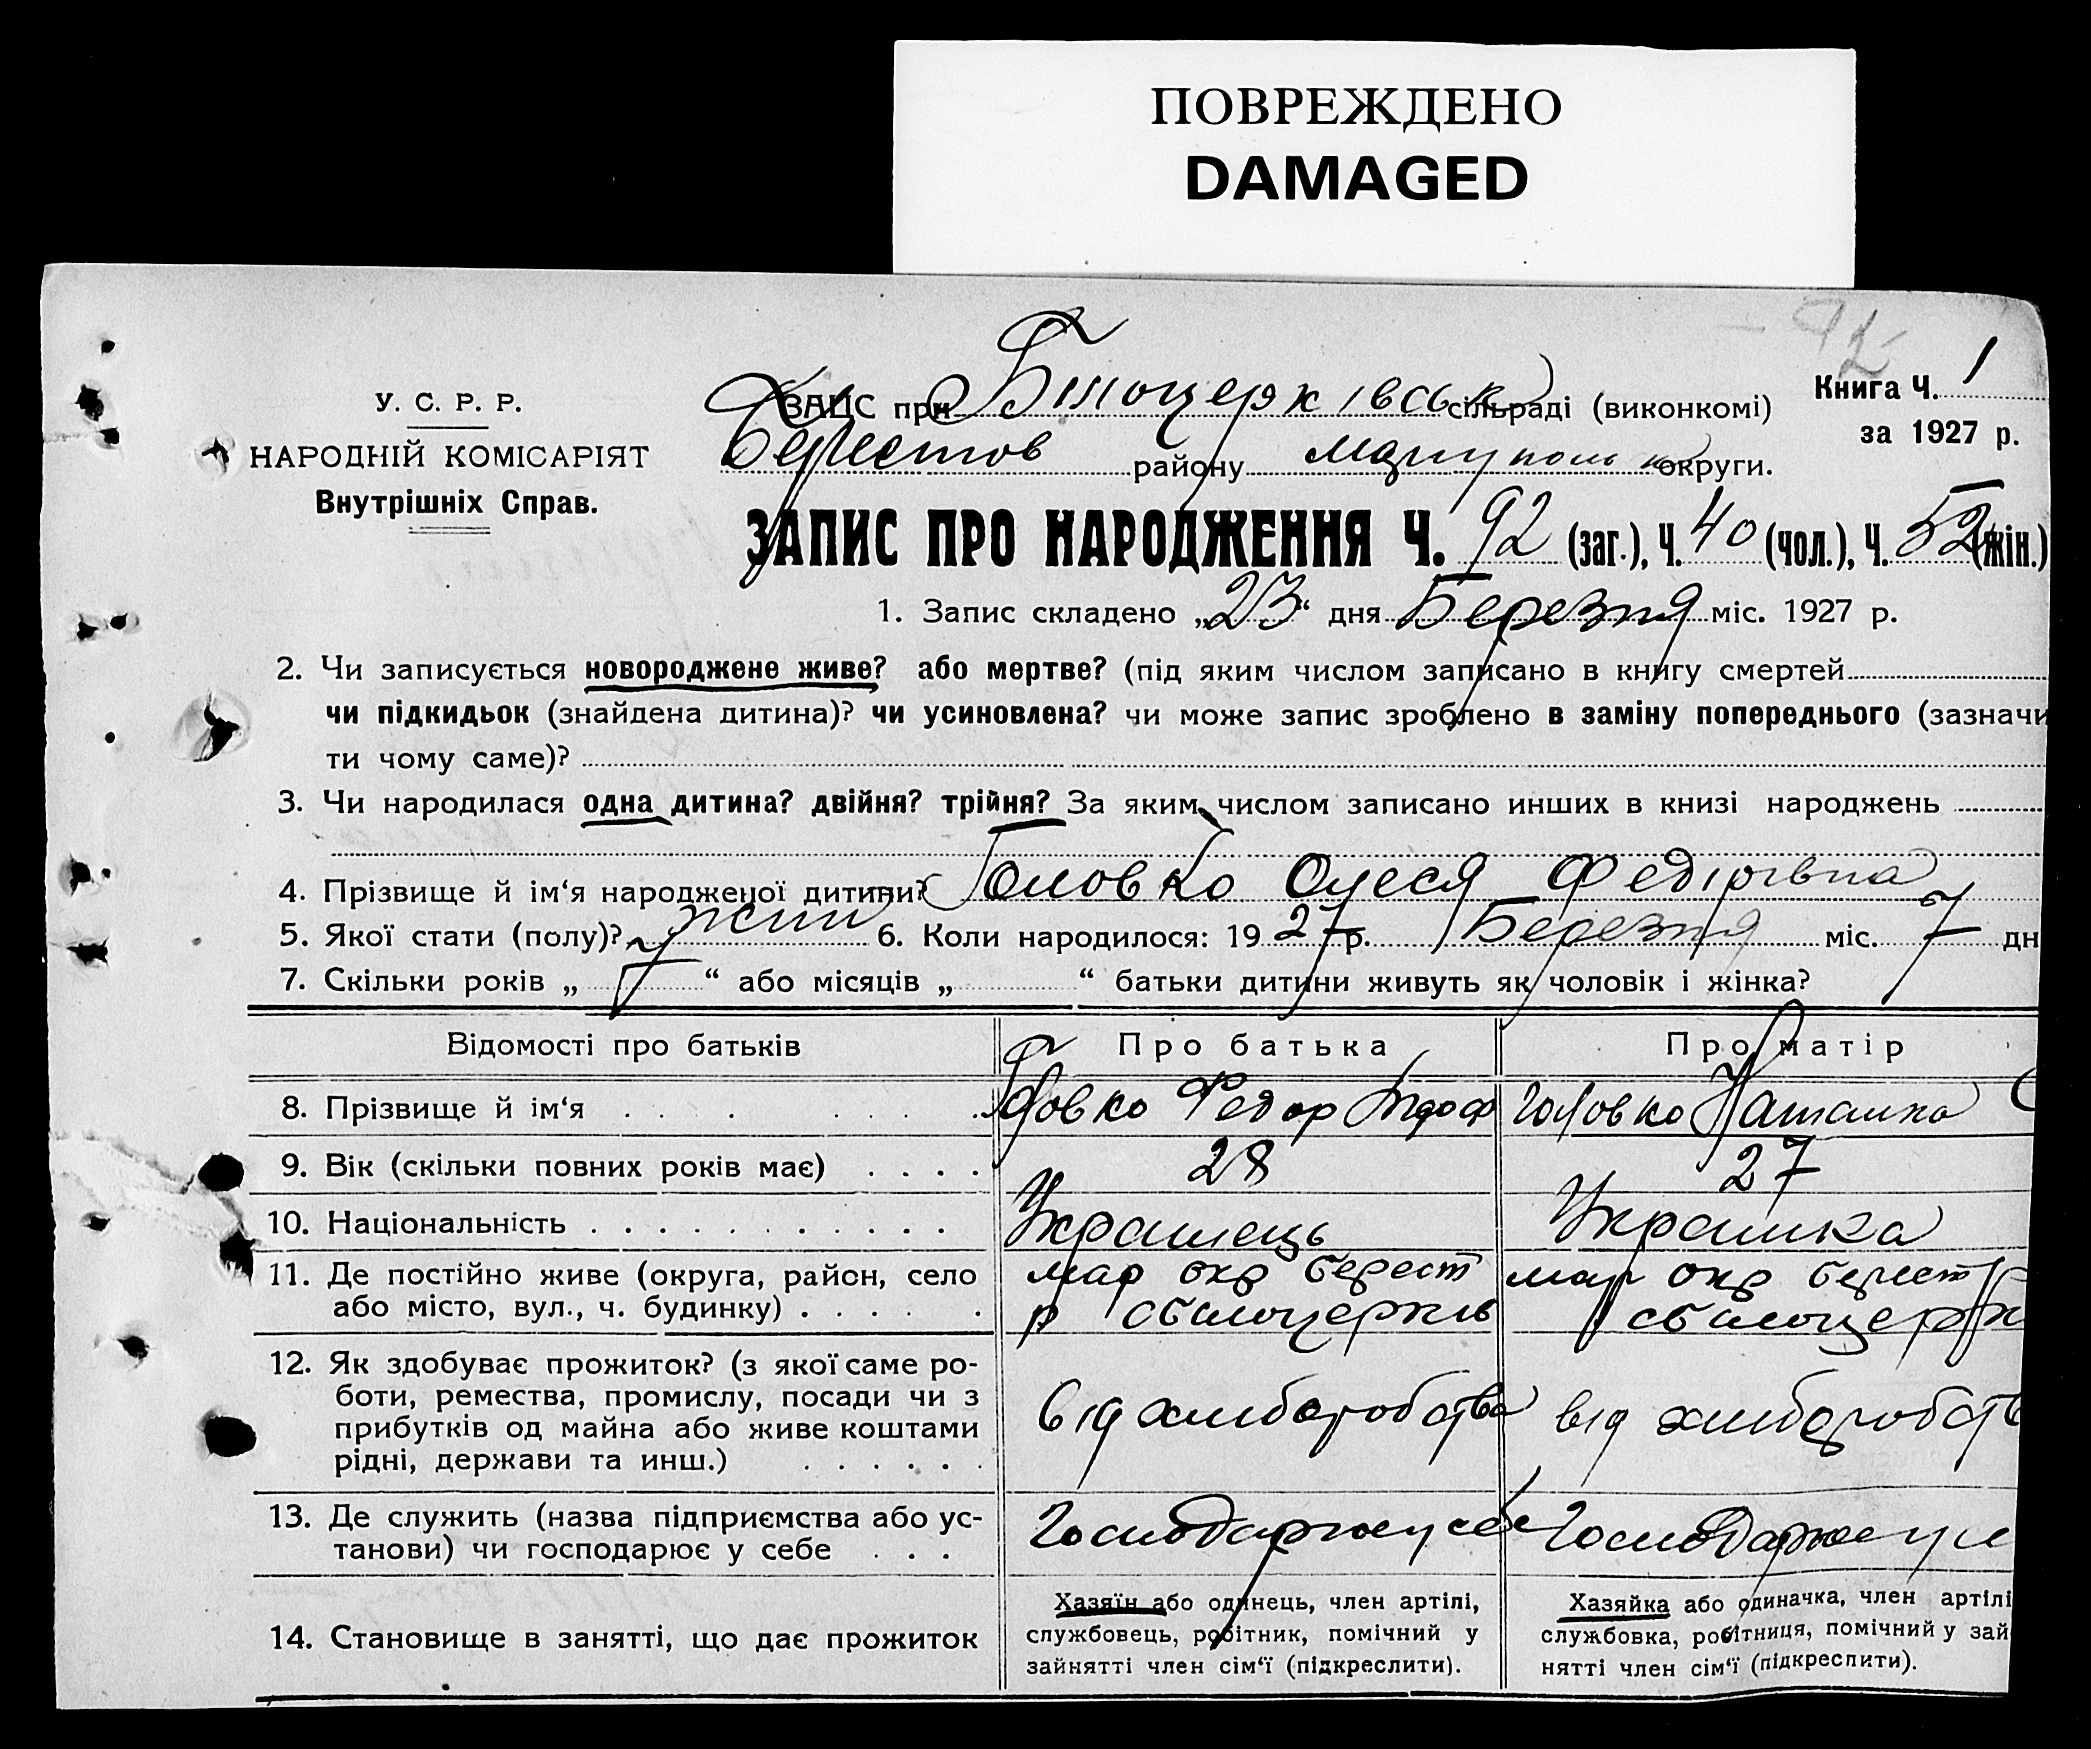 ПОВРЕЖДЕНО
DAMAGED
92
У. С. Р. Р.
НАРОДНІЙ КОМІСАРІЯТ
Внутрішніх Справ.
ЗАЦС при Білоцерківськ сільраді (виконкомі)
Берестов району Маріупольк округи.
Книга Ч. 1
за 1927 р.
ЗАПИС ПРО НАРОДЖЕННЯ Ч. 92 (заг.), Ч. 40 (чол.), Ч. 52 (жін.)
1. Запис складено „23“ дня Березня міс. 1927 р.
2. Чи записується новороджене живе? або мертве? (під яким числом записано в книгу смертей
чи підкидьок (знайдена дитина)? чи усиновлена? чи може запис зроблено в заміну попереднього (зазначи
ти чому саме)?
3. Чи народилася одна дитина? двійня? трійня? За яким числом записано инших в книзі народжень
4. Прізвище й ім‘я народженої дитини? Головко Олеся Федірівна
5. Якої стати (полу)? жин 6. Коли народилося: 1927 р. Березня міс. 7 дн
7. Скільки років „ “ або місяців „ “ батьки дитини живуть як чоловік і жінка?
Відомості про батьків Про батька Про матір
8. Прізвище й ім‘я Головко Федор Головко Наталка
9. Вік (скільки повних років має) 28 27
10. Національність Українець Українка
11. Де постійно живе (округа, район, село мар окр берест мар окр берест
або місто, вул., ч. будинку) р с білоцерків р с білоцерк
12. Як здобуває прожиток? (з якої саме ро-
боти, ремества, промислу, посади чи з
прибутків од майна або живе коштами від хліборобства від хліборобств
рідні, держави та инш.)
13. Де служить (назва підприємства або ус-
танови) чи господарює у себе Господарює у себе Господарює у
14. Становище в занятті, що дає прожиток
Хазяїн або одинець, член артілі,
службовець, робітник, помічний у
зайнятті член сім‘ї (підкреслити).
Хазяйка або одиначка, член артілі
службовка, робітниця, помічний у зай
нятті член сім‘ї (підкреслити).